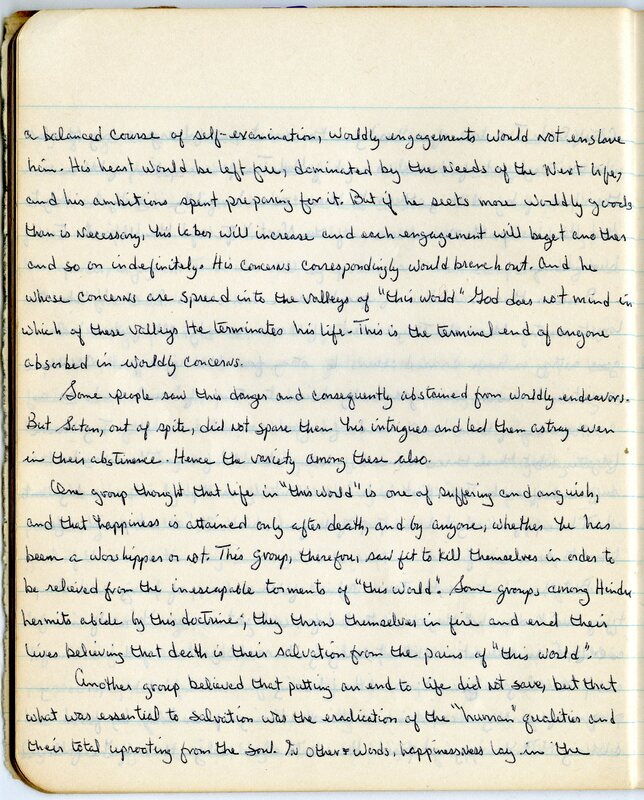 a balanced course of self-examination, worldly engagements would not enslave
him. His heart would be left free, dominated by the needs of the Next Life,
and his ambitions spent preparing for it. But if he seeks more worldly goods
than is necessary, his labor will increase and each engagement will beget another
and so on indefinitely. His concerns correspondingly would branch out. And he
whose concerns are spread into the valleys of "this world" God does not mind in
which of these valleys He terminates his life. This is the terminal end of anyone
absorbed in worldly concerns.
Some people saw this danger and consequently abstained from worldly endeavors.
But Satan, out of spite, did not spare them his intrigues and led them astray even
in their abstinence. Hence the variety among these also.
One group thought that life in "this world" is one of suffering and anguish,
and that happiness is attained only after death, and by anyone, whether he has
been a worshipper or not. This group, therefore, saw fit to kill themselves in order to
be relieved from the inescapable torments of "this world". Some groups among Hindu
hermits abide by this doctrine; they throw themselves in fire and end their
lives believing that death is their salvation from the pains of "this world".
Another group believed that putting an end to life did not save, but that
what was essential to salvation was the eradication of the "human" qualities and
their total uprooting from the soul. In other words, happinessness lay in the